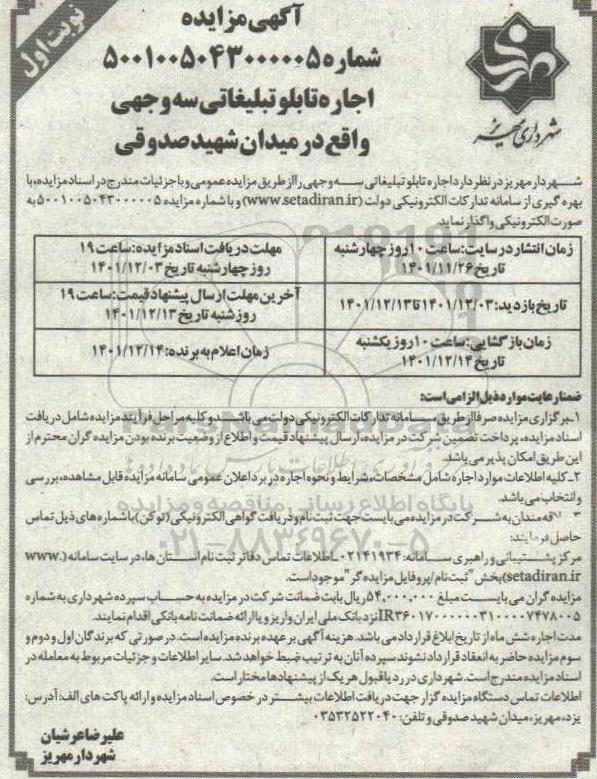 نوبت اول
آگهی مزایده
شماره ۵۰۰۱۰۰۵۰۴۳۰۰۰۰۰۵
اجاره تابلو تبلیغاتی سه وجهی
واقع در میدان شهید صدوقی
شهرداری مهریز
شهردار مهریز در نظر دارد اجاره تابلو تبلیغاتی سه وجهی را از طریق مزایده عمومی و با جزئیات مندرج در اسناد مزایده، با
بهره گیری از سامانه تدارکات الکترونیکی دولت (www.setadiran.ir) و با شماره مزایده ۵۰۰۱۰۰۵۰۴۳۰۰۰۰۰۵ به
صورت الکترونیکی واگذار نماید
زمان انتشار در سایت: ساعت ۱۰ روز چهارشنبه
تاریخ ۱۴۰۱/۱۱/۲۶
مهلت دریافت اسناد مزایده: ساعت ۱۹
روز چهارشنبه تاریخ ۱۴۰۱/۱۲/۰۳
تاریخ بازدید: ۱۴۰۱/۱۲/۰۳ تا ۱۴۰۱/۱۲/۱۳
آخرین مهلت ارسال پیشنهاد قیمت: ساعت ۱۹
روز شنبه تاریخ ۱۴۰۱/۱۲/۱۳
زمان بازگشایی: ساعت ۱۰ روز یکشنبه
تاریخ ۱۴۰۱/۱۲/۱۴
زمان اعلام به برنده: ۱۴۰۱/۱۲/۱۴
ضمنا رعایت موارد ذیل الزامی است:
۱ـ برگزاری مزایده صرفا از طریق سامانه تدارکات الکترونیکی دولت می باشد و کلیه مراحل فرآیند مزایده شامل دریافت
اسناد مزایده، پرداخت تضمین شرکت در مزایده، ارسال پیشنهاد قیمت و اطلاع از وضعیت برنده بودن مزایده گران محترم از
این طریق امکان پذیر می باشد.
۲ـ کلیه اطلاعات موارد اجاره شامل مشخصات، شرایط و نحوه اجاره در برد اعلان عمومی سامانه مزایده قابل مشاهده، بررسی
و انتخاب می باشد.
۳ـ علاقه مندان به شرکت در مزایده می بایست جهت ثبت نام و دریافت گواهی الکترونیکی (توکن) با شماره های ذیل تماس
حاصل فرمایند:
مرکز پشتیبانی و راهبری سامانه: ۰۲۱۴۱۹۳۴ـ اطلاعات تماس دفاتر ثبت نام استان ها، در سایت سامانه (www.
setadiran.ir) بخش "ثبت نام/پروفایل مزایده گر" موجود است.
مزایده گران می بایست مبلغ ۵۴,۰۰۰,۰۰۰ ریال بابت ضمانت شرکت در مزایده به حساب سپرده شهرداری به شماره
IR۳۶۰۱۷۰۰۰۰۰۰۳۱۰۰۰۰۷۴۷۸۰۰۵ نزد بانک ملی ایران واریز و یا ارائه ضمانت نامه بانکی اقدام نمایند.
مدت اجاره شش ماه از تاریخ ابلاغ قرارداد می باشد. هزینه آگهی بر عهده برنده مزایده است. در صورتی که برندگان اول و دوم و
سوم مزایده حاضر به انعقاد قرارداد نشوند سپرده آنان به ترتیب ضبط خواهد شد. سایر اطلاعات و جزئیات مربوط به معامله در
اسناد مزایده مندرج است. شهرداری در رد یا قبول هر یک از پیشنهادها مختار است.
اطلاعات تماس دستگاه مزایده گزار جهت دریافت اطلاعات بیشتر در خصوص اسناد مزایده و ارائه پاکت های الف: آدرس:
یزد، مهریز، میدان شهید صدوقی و تلفن: ۰۳۵۳۲۵۲۲۰۴۰
علیرضا عرشیان
شهردار مهریز
ParsNamadData
پایگاه اطلاع رسانی مناقصه و مزایده
۰۲۱-۸۸۳۴۹۶۷۰-۵